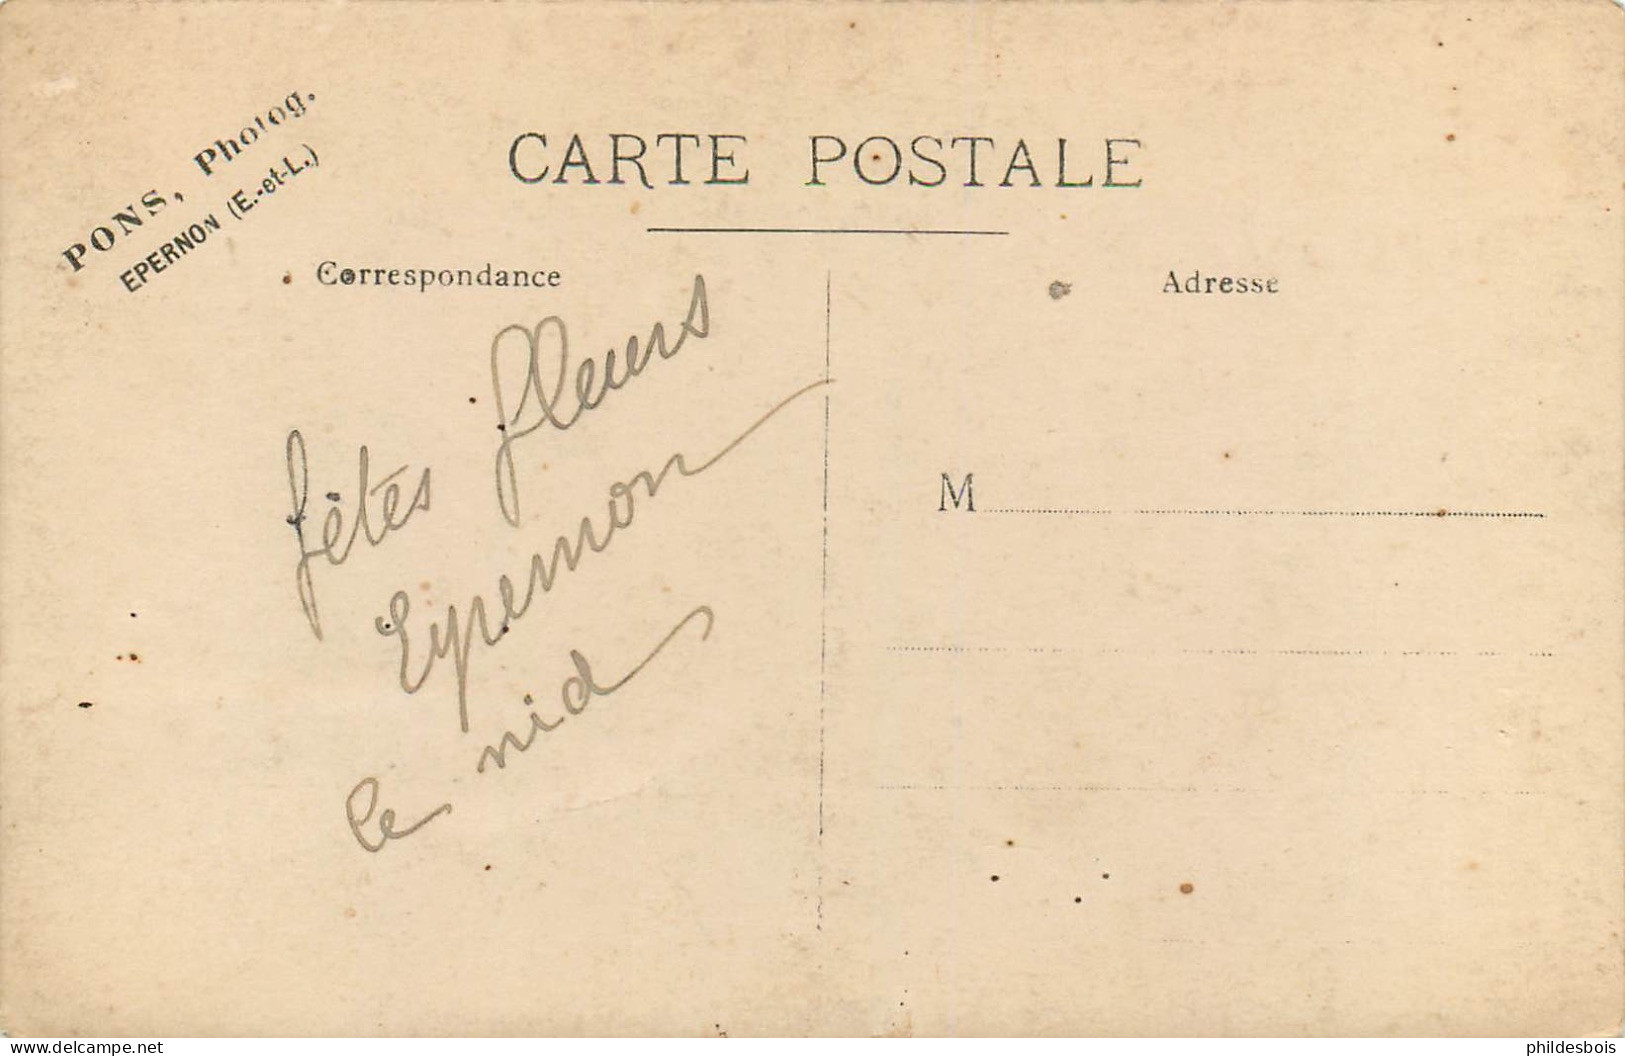 PONS, Photog.
EPERNON (E.-et-L.)
CARTE POSTALE
Correspondance
Adresse
fêtes fleurs
Epernon
le nid
M
www.delcampe.net
phildesbois